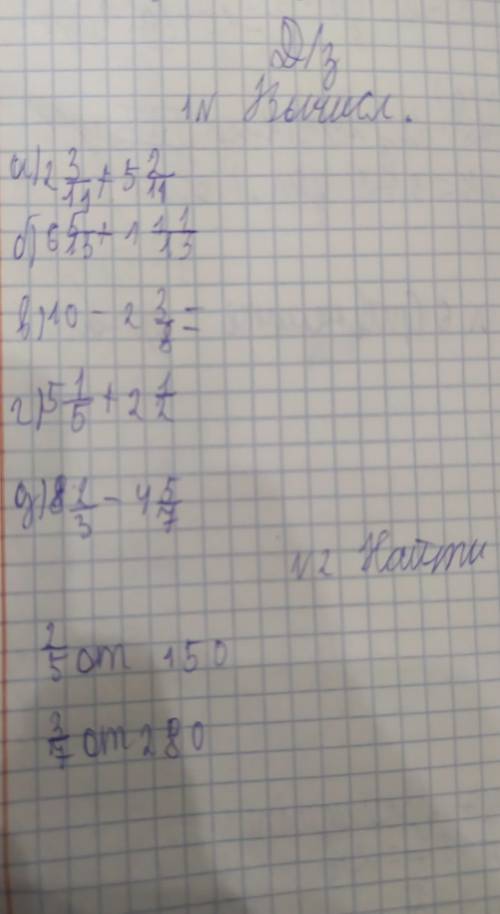 Д/з
1N Вычисл.
а) 2 3/11 + 5 2/11
б) 6 5/13 + 1 11/13
в) 10 - 2 3/8 =
г) 5 1/5 + 2 1/2
д) 8 1/3 - 4 5/7
N2 Найти
2/5 от 150
3/7 от 280